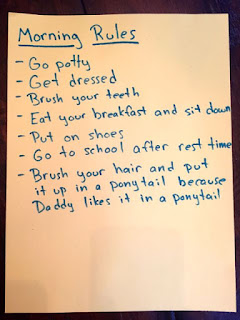 Morning Rules
- Go potty
- Get dressed
- Brush your teeth
- Eat your breakfast and sit down
- Put on shoes
- Go to school after rest time
- Brush your hair and put
it up in a ponytail because
Daddy likes it in a ponytail